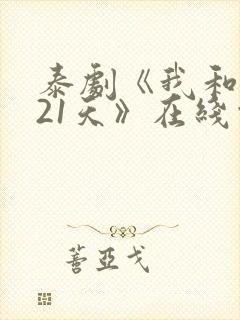 泰劇《我和
21天》在綫
蓍亞戈